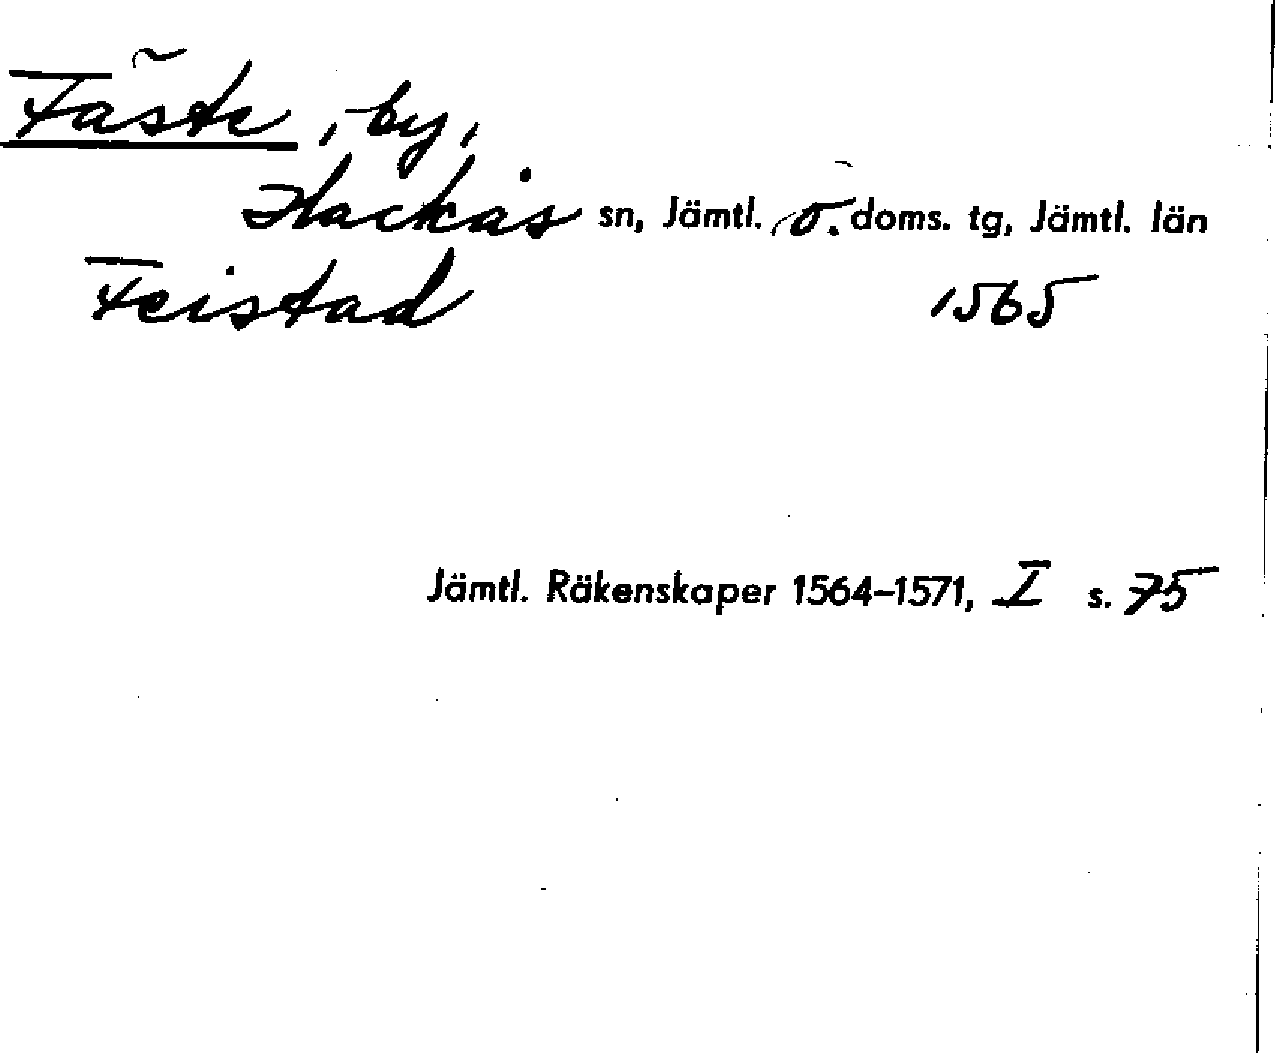 Fäste, by,
Hackås sn, Jämtl. ö. doms. tg, Jämtl. län
Feistad 1565
Jämtl. Räkenskaper 1564–1571, I s. 75